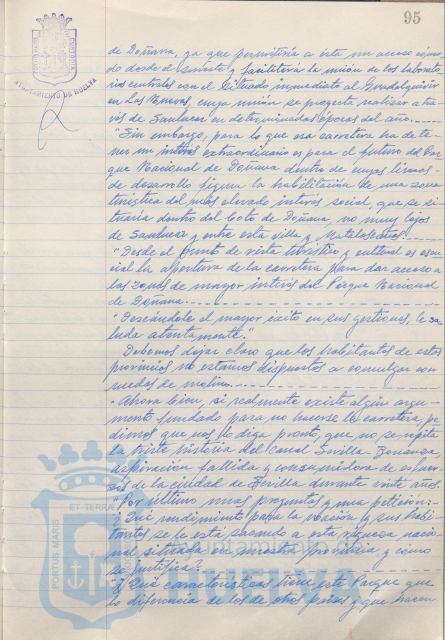 95
AYUNTAMIENTO DE HUELVA
de Doñana, ya que permitiría a ésta un acceso cómo-
do desde el sureste y facilitará la unión de los laborato-
rios centrales con el situado inmediato al Guadalquivir
en Las Nuevas, cuya unión se proyecta realizar a tra-
vés de Sanlucar en determinadas épocas del año.
"Sin embargo, para lo que esa carretera ha de te-
ner un interés extraordinario es para el futuro del Par-
que Nacional de Doñana dentro de cuyas líneas
de desarrollo figura la habilitación de una zona
turística del más elevado interés social, que se si-
tuaría dentro del Coto de Doñana, no muy lejos
de Sanlucar y entre esta villa y Matalascañas.
"Desde el punto de vista turístico y cultural es esen-
cial la apertura de la carretera para dar acceso a
las zonas de mayor interés del Parque Nacional
de Doñana.
"Deseándole el mayor éxito en sus gestiones, le sa-
luda atentamente."
Debemos dejar claro que los habitantes de estas
provincias no estamos dispuestos a comulgar con
ruedas de molino.
Ahora bien, si realmente existe algún argu-
mento fundado para no hacerse la carretera, pe-
dimos que nos lo diga pronto, que no se repita
la triste historia del canal Sevilla-Bonanza,
aspiración fallida y consumidora de esfuer-
zos de la ciudad de Sevilla durante veinte años.
"Por último unas preguntas y una petición:
¿Qué rendimiento para la nación y sus habi-
tantes se le está sacando a esta riqueza nacio-
nal situada en nuestra provincia y cómo
se justifica?
"¿Qué características tiene este Parque que
lo diferencia de los de otros países y que hacen
PORTUS MARIS
ET TERRAE
HUELVA